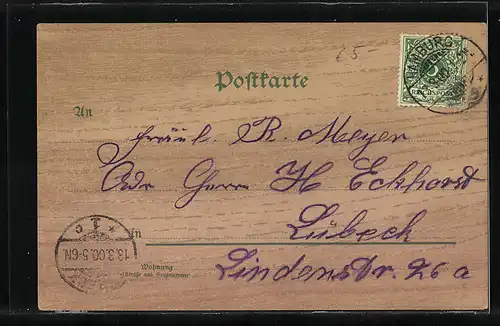 65-
HAMBURG
Postkarte
An
Fräul. R. Meyer
Adr Herrn H Eckhorst
in Lübeck
Wohnung
(Straße und Hausnummer)
Lindenstr. 26 a
* 1 c
13.3.00.5-6N